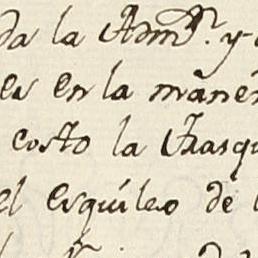 da la Admôn. y
es en la mañe
costo la Trasqu
el esquíleo de